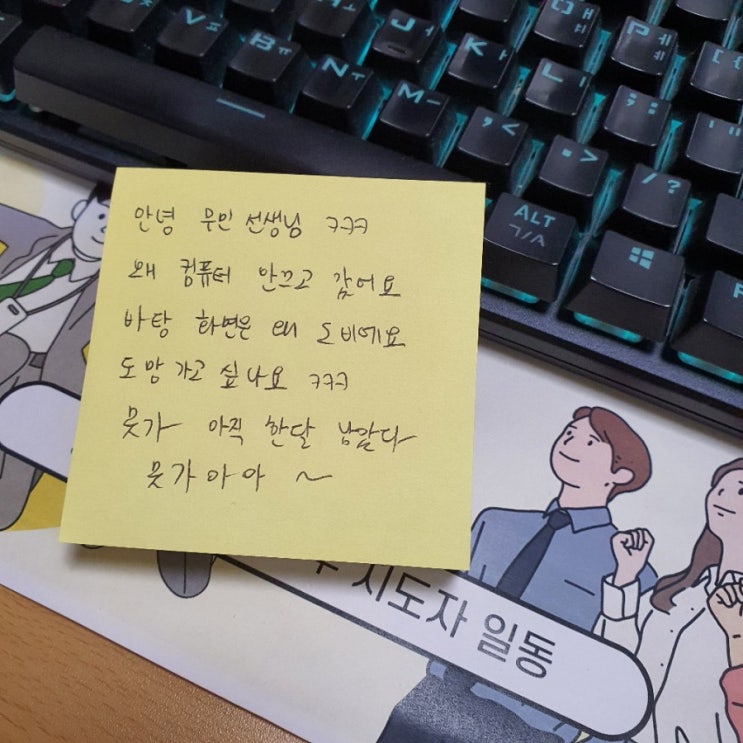 V ㅍ
B ㅠ
N ㅜ
M ㅡ
J ㅓ
K ㅏ
L ㅣ
, <
. >
/ ?
; :
" '
[ {
P ㅔ ㅖ
ALT
ㄱ/A
안녕 무인 선생님 ㅋㅋㅋ
왜 컴퓨터 안끄고 갔어요
바탕 화면은 왜 도비에요
도망 가고 싶나요 ㅋㅋㅋ
못가 아직 한달 남았다
못가 아 아 ~
지도자 일동